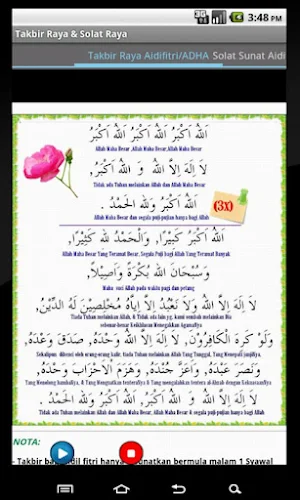 3G
3:48 PM
Takbir Raya & Solat Raya
Takbir Raya Aidifitri/ADHA Solat Sunat Aidi
اَللهُ اَكْبَرُ اَللهُ اَكْبَرُ اَللهُ اَكْبَرُ
Allah Maha Besar ,Allah Maha Besar,Allah Maha Besar
لَا إِلَهَ إِلاَّ اللهُ وَ اللهُ اَكْبَرُ,
Tidak ada Tuhan melainkan Allah dan Allah Maha Besar
اَللهُ اَكْبَرُ وَللهِ الْحَمْدُ .
(3x)
Allah Maha Besar dan segala puji-pujian hanya bagi Allah
اَللهُ اَكْبَرُ كَبِيْرًا, وَالْحَمْدُ للهِ كَثِيْرًا,
Allah Maha Besar Yang Teramat Besar, Segala Puji bagi Allah Yang Teramat Banyak
وَسُبْحَانَ اللهِ بُكْرَةً وَأَصِيْلاً,
Maha suci Allah pada waktu pagi dan petang
لَا إِلَهَ إِلاَّ اللهُ وَلاَ نَعْبُدُ إِلاَّ إِيَّاهُ مُخْلِصِيْنَ لَهُ الدِّيْنُ,
Tiada Tuhan melainkan Allah, & Tidak ada lain yg, kami sembah melainkan Dia
sebenar-benar Keikhlasan Menegakkan Agamanya
وَلَوْ كَرِهَ الْكَافِرُوْنَ, لَا إِلَهَ إِلاَّ اللهُ وَحْدَهُ, صَدَقَ وَعْدَهُ,
Sekalipun dibenci oleh orang-orang kafir, tiada Tuhan melainkan Allah Yang Tunggal, Yang Menepati janjiNya,
وَنَصَرَ عَبْدَهُ, وَأَعَزَّ جُنْدَهُ, وَهَزَمَ الأَحْزَابَ وَحْدَهُ,
Yang Menolong hambaNya, & Yang Menguatkan tenteraNya & Yang mengalahkan tentera al-Ahzab dengan KekuasaanNya
لَا إِلَهَ إِلاَّ اللهُ وَاللهُ اَكْبَرُ, اَللهُ اَكْبَرُ وَللهِ الْحَمْدُ .
Tiada Tuhan melainkan Allah dan Allah Maha Besar, Allah Maha Besar & segala puji-pujian hanya bagi Allah
NOTA:
- Takbir bagi Aidil fitri hanya disunatkan bermula malam 1 Syawal